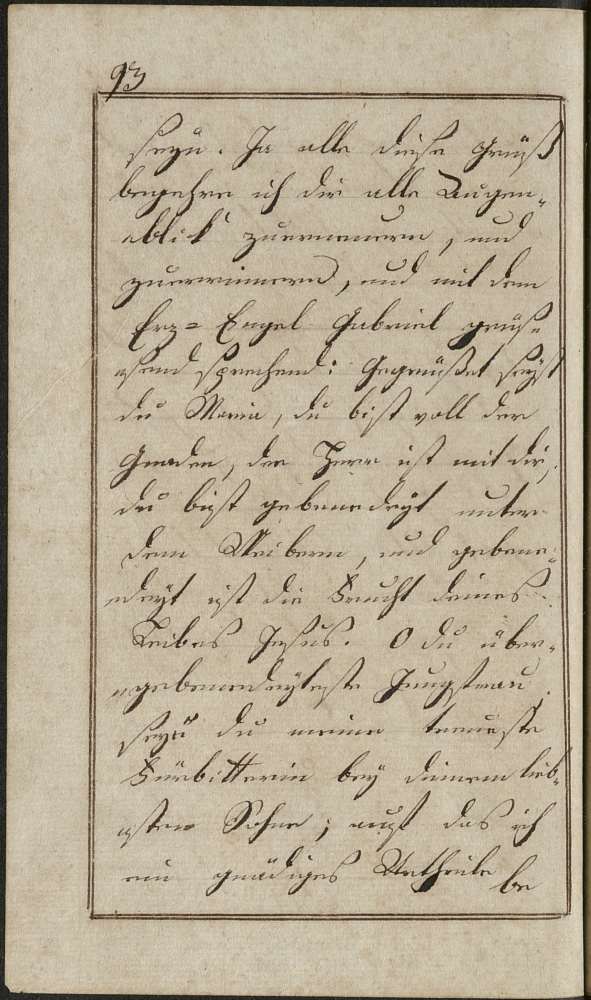 93
seyn. Ja alle diese Grüß
begehre ich dir alle Augen-
-blick zuernenern, und
zuerwinnern, und mit dem
Erz= Engel Gabriel grüß-
-send sprechend: Gegrüßet seyst
du Maria, du bist voll der
Gnaden, der Herr ist mit dir,
du bist gebenedeyt unter
denn Weibern, und gebene-
-deyt ist die Frucht deines
Leibes Jesus. O du über-
-gebenedeyteste Jungfrau
seye du meine treueste
Fürbitterin bey deinem lieb-
-sten Sohne; auf das ich
ein gnädiges Urtheile
be